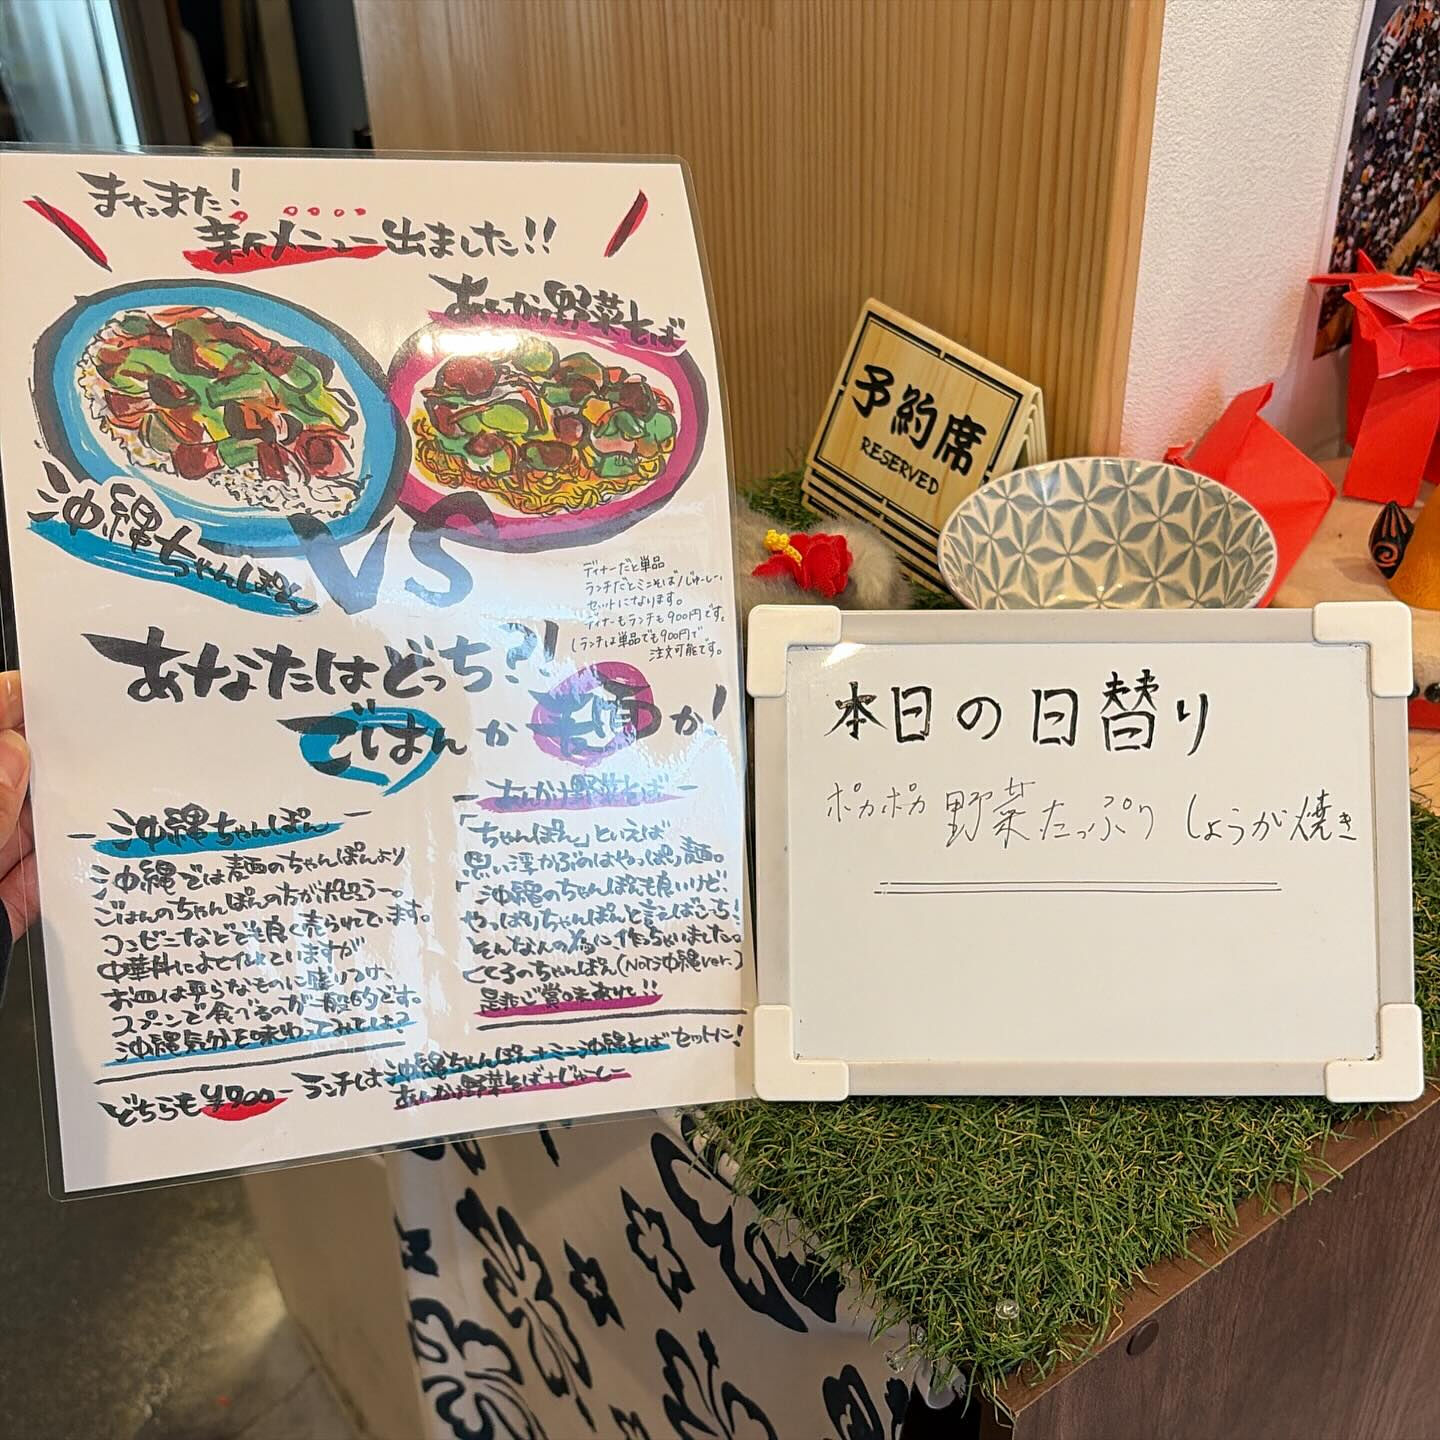 またまた!
新メニュー出ました!!
あんかけ野菜そば
沖縄ちゃんぽん
VS
ディナーだと単品
ランチだとミニそば/じゅーしー
セットになります。
ディナーもランチも900円です。
(ランチは単品でも900円で
注文可能です。
あなたはどっち?!
ごはんか 麺か!
沖縄ちゃんぽん
沖縄では麺のちゃんぽんより
ごはんのちゃんぽんの方がポピュラー。
コンビニなどでも良く売られています。
中華丼によく似ていますが
お皿は平らなものに盛りつけ、
スプーンで食べるのが一般的です。
沖縄気分を味わってみては?
あんかけ野菜そば
「ちゃんぽん」といえば
思い浮かぶのはやっぱり麺。
「沖縄のちゃんぽんも良いけど、
やっぱりちゃんぽんと言えばこっち!
そんな人の為に作っちゃいました。
くくるのちゃんぽん(NOT沖縄ver.)
是非ご賞味あれ!!
どちらも¥900- ランチは沖縄ちゃんぽん+ミニ沖縄そばセットに!
あんかけ野菜そば+じゅーしー
予約席
RESERVED
本日の日替り
ポカポカ 野菜たっぷり しょうが焼き